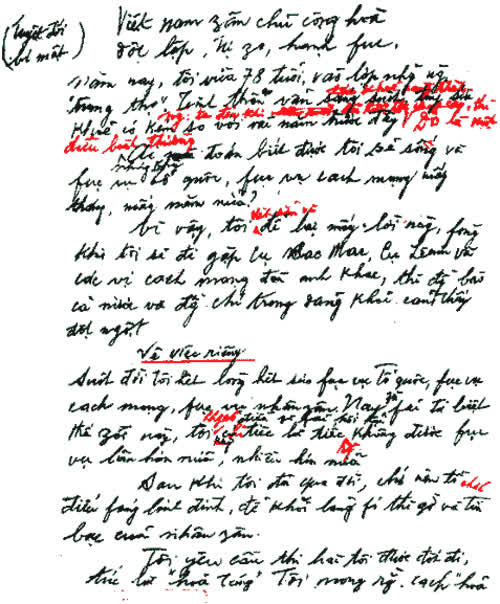 (Tuyệt đối
bí mật)
Việt nam zân chủ cộng hoà
độc lập, tự zo, hạnh fúc.
Năm nay, tôi vừa 78 tuổi, vào lớp những ng.
"trung thọ". Tinh thần vẫn sáng suốt,
khoẻ có kém so với vài năm trước đây. Đó là một
điều bình thường.
Nhưng ai mà đoán biết được tôi sẽ sống và
fục vụ tổ quốc, fục vụ cách mạng mấy
tháng, mấy năm nữa?
Vì vậy, tôi viết sẵn và để lại mấy lời này, fòng
khi tôi sẽ đi gặp cụ Các Mác, cụ Lênin và
các vị cách mạng đàn anh khác, thì đ bào
cả nước và đ chí trong đảng khỏi cảm thấy
đột ngột.
Về việc riêng
Suốt đời tôi hết lòng hết sức fục vụ Tổ quốc, fục vụ
cách mạng, fục vụ nhân zân. Nay zù fải từ biệt
thế zới này, tôi tiếc là tiếc không được fục
vụ lâu hơn nữa, nhiều hơn nữa
Sau khi tôi đã qua đời, chớ nên tổ chức
điếu fúng linh đình, để khỏi lãng fí thì zờ và tiền
bạc của nhân zân.
Tôi yêu cầu thi hài tôi được đốt đi,
tức là "hoả táng". Tôi mong rằng cách "hoả